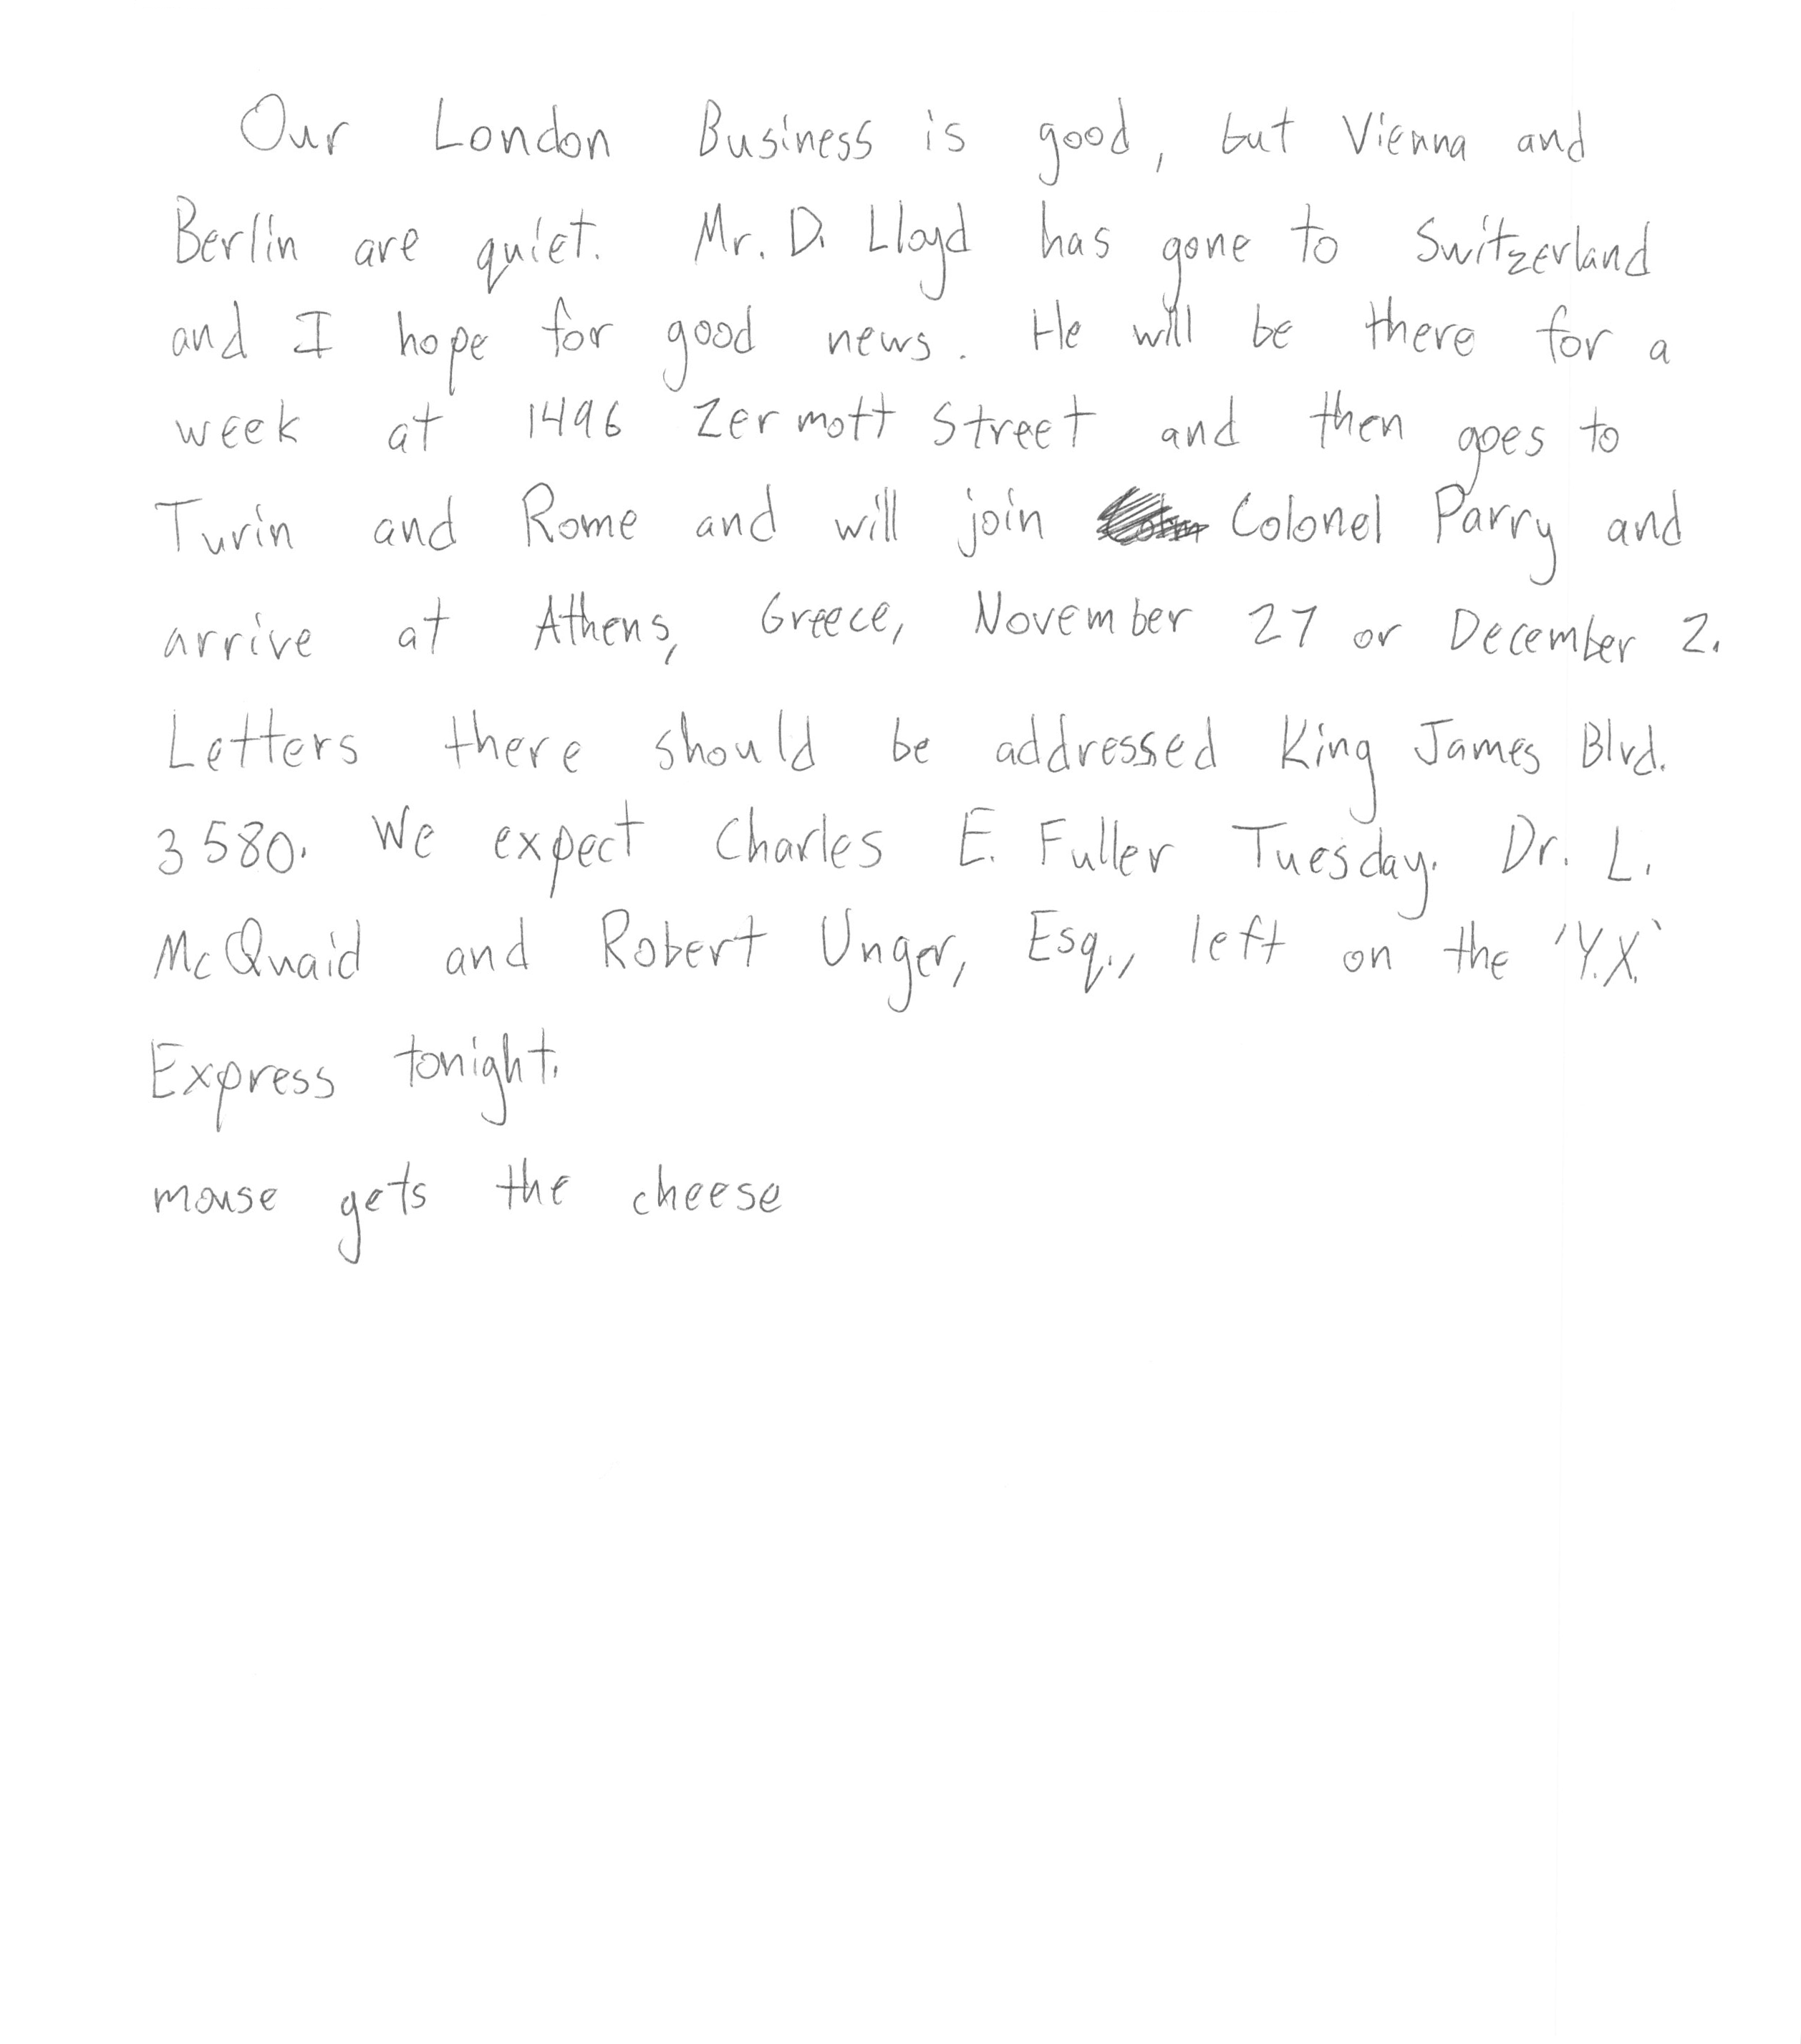 Our London Business is good, but Vienna and
Berlin are quiet. Mr. D. Lloyd has gone to Switzerland
and I hope for good news. He will be there for a
week at 1496 Zermott Street and then goes to
Turin and Rome and will join Colonel Parry and
arrive at Athens, Greece, November 27 or December 2.
Letters there should be addressed King James Blvd.
3580. We expect Charles E. Fuller Tuesday. Dr. L.
McQuaid and Robert Unger, Esq., left on the 'Y.X.'
Express tonight.
mouse gets the cheese